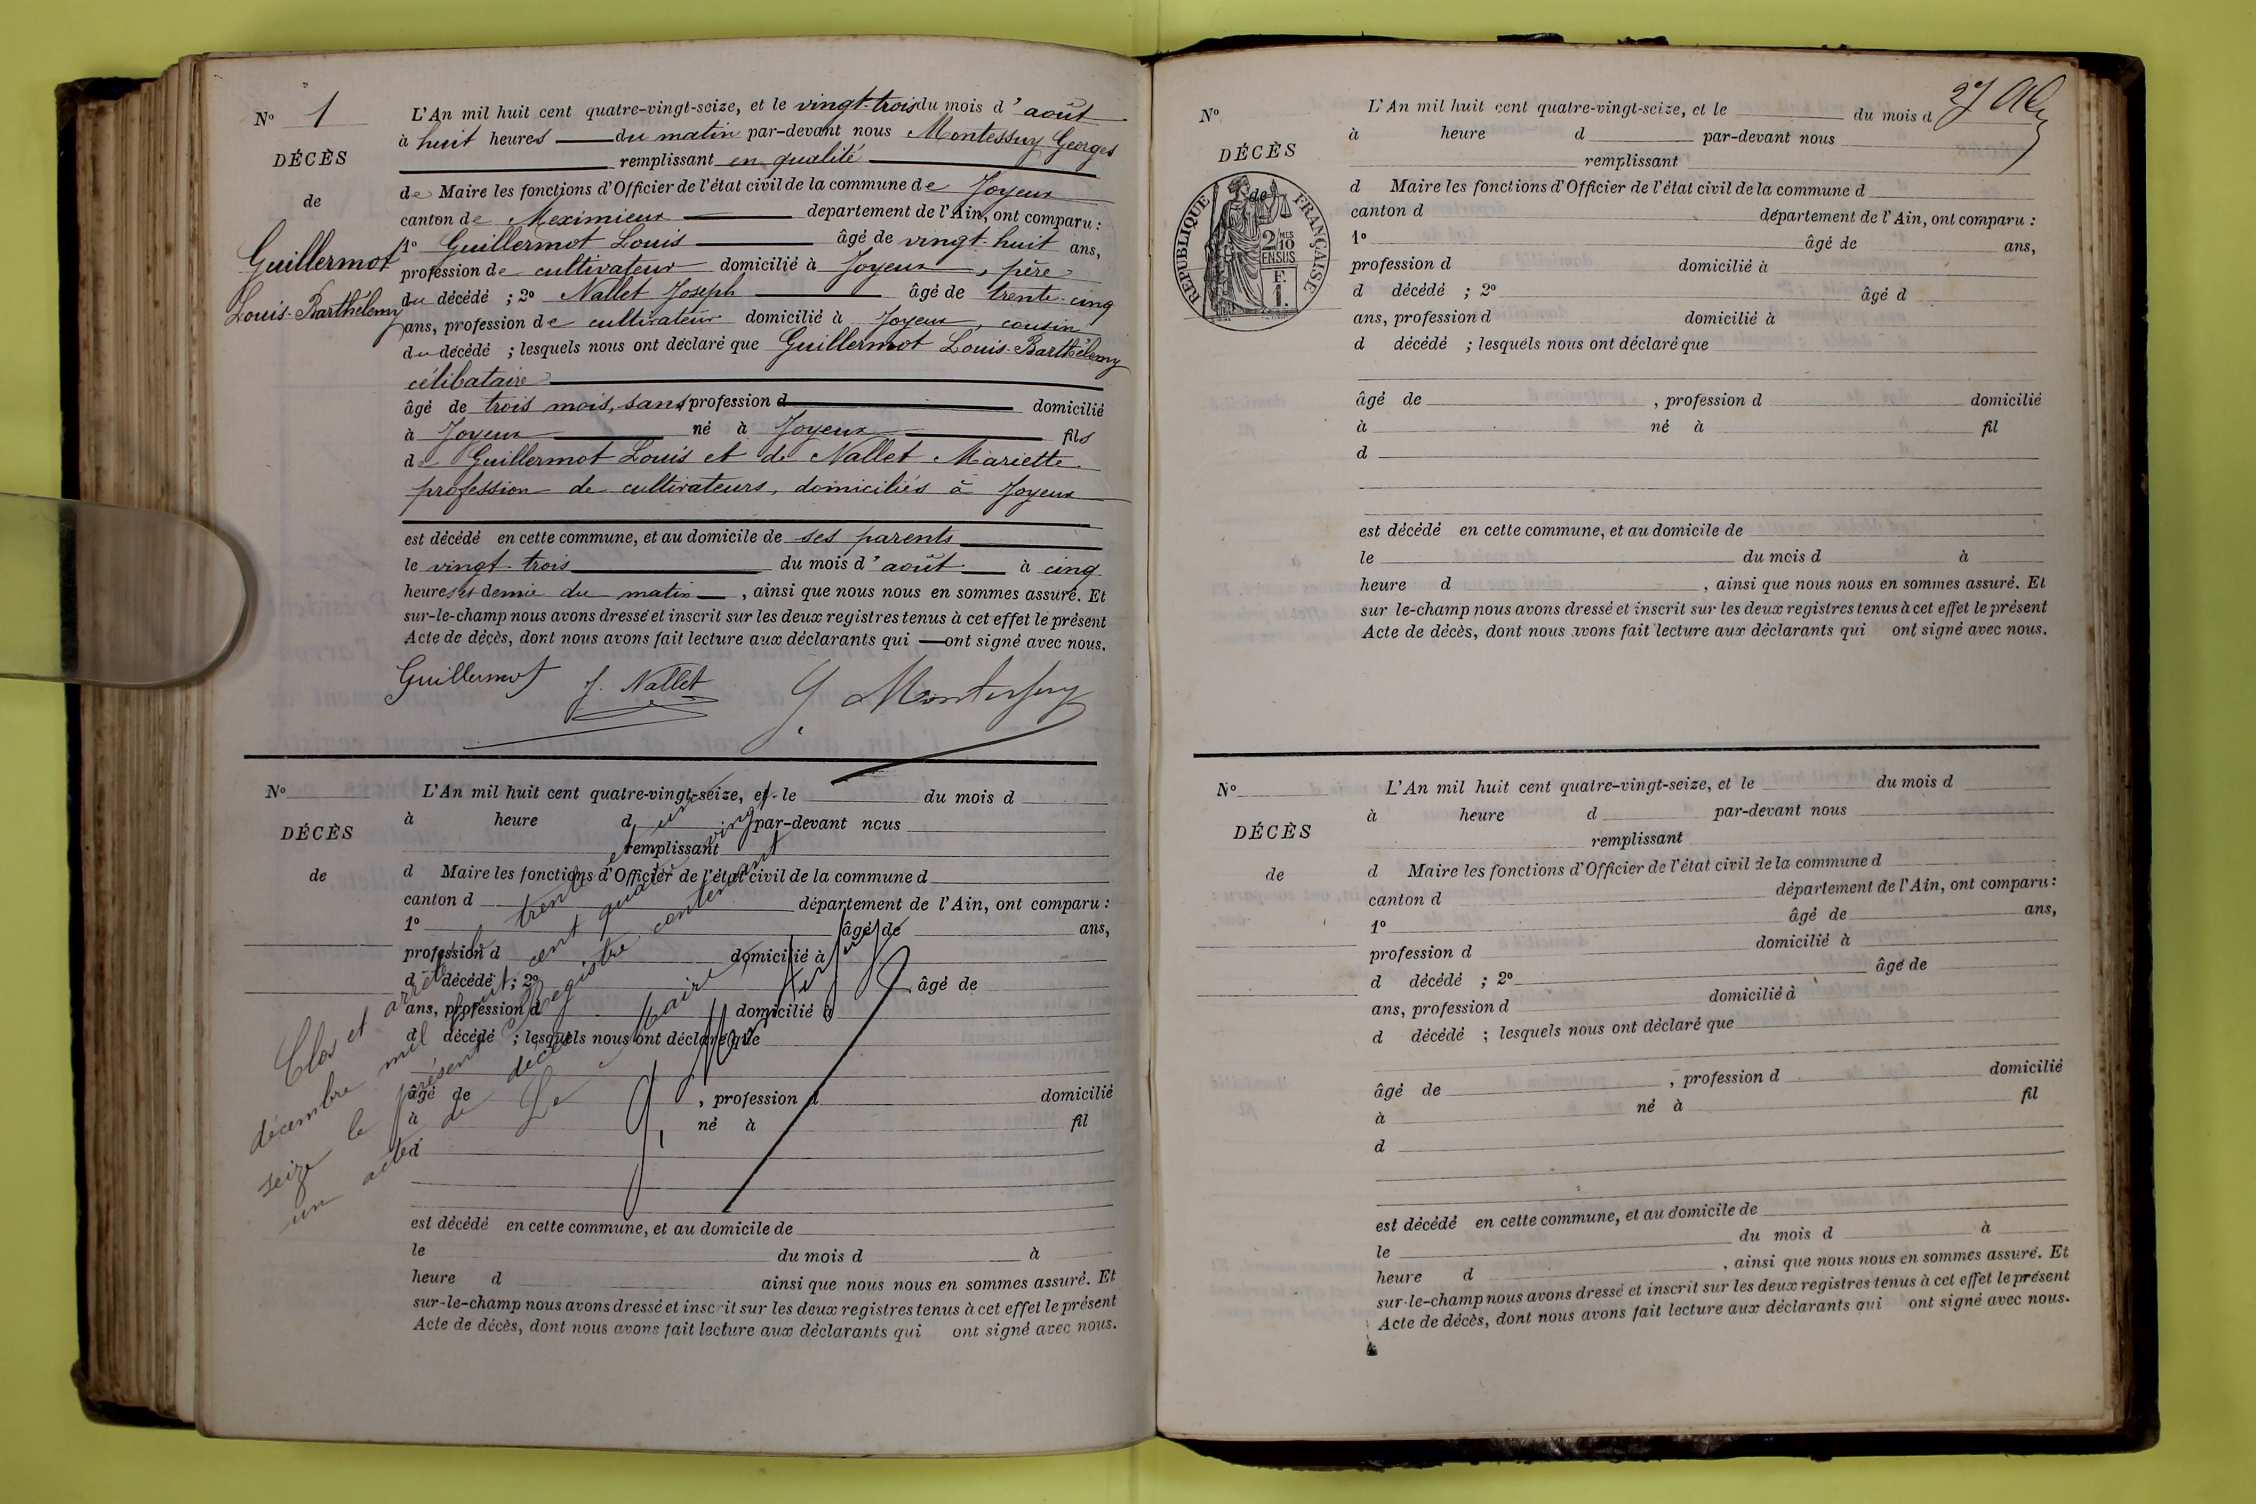 N° 1
DÉCÈS
de
Guillermot
Louis-Barthélemy
L'An mil huit cent quatre-vingt-seize, et le vingt-trois du mois d'août
à huit heures du matin par-devant nous Montessuy Georges
remplissant en qualité
de Maire les fonctions d'Officier de l'état civil de la commune de Joyeux
canton de Meximieux departement de l'Ain, ont comparu :
1° Guillermot Louis âgé de vingt-huit ans,
profession de cultivateur domicilié à Joyeux, père
du décédé ; 2° Nallet Joseph âgé de trente-cinq
ans, profession de cultivateur domicilié à Joyeux, cousin
du décédé ; lesquels nous ont déclaré que Guillermot Louis-Barthélemy
célibataire
âgé de trois mois, sans profession d domicilié
à Joyeux né à Joyeux fils
de Guillermot Louis et de Nallet Mariette
profession de cultivateurs, domiciliés à Joyeux
est décédé en cette commune, et au domicile de ses parents
le vingt-trois du mois d'août à cinq
heures et demie du matin, ainsi que nous nous en sommes assuré. Et
sur-le-champ nous avons dressé et inscrit sur les deux registres tenus à cet effet le présent
Acte de décès, dont nous avons fait lecture aux déclarants qui ont signé avec nous.
Guillermot J. Nallet G. Montessuy
N°
DÉCÈS
de
L'An mil huit cent quatre-vingt-seize, et le du mois d
à heure d par-devant nous
remplissant
d Maire les fonctions d'Officier de l'état civil de la commune d
canton d département de l'Ain, ont comparu :
1° âgé de ans,
profession d domicilié à
d décédé ; 2° âgé de
ans, profession d domicilié à
d décédé ; lesquels nous ont déclaré que
âgé de , profession d domicilié
à né à fil
d
est décédé en cette commune, et au domicile de
le du mois d à
heure d ainsi que nous nous en sommes assuré. Et
sur-le-champ nous avons dressé et inscrit sur les deux registres tenus à cet effet le présent
Acte de décès, dont nous avons fait lecture aux déclarants qui ont signé avec nous.
Clos et arrêté le trente et un
décembre mil huit cent quatre vingt
seize le présent registre contenant
un acte de décès
Le Maire
G. Montessuy
27
N°
DÉCÈS
de
RÉPUBLIQUE FRANÇAISE
2 MES
10
EN SUS
F.
1.
L'An mil huit cent quatre-vingt-seize, et le du mois d
à heure d par-devant nous
remplissant
d Maire les fonctions d'Officier de l'état civil de la commune d
canton d département de l'Ain, ont comparu :
1° âgé de ans,
profession d domicilié à
d décédé ; 2° âgé d
ans, profession d domicilié à
d décédé ; lesquels nous ont déclaré que
âgé de , profession d domicilié
à né à fil
d
est décédé en cette commune, et au domicile de
le du mois d à
heure d , ainsi que nous nous en sommes assuré. Et
sur le-champ nous avons dressé et inscrit sur les deux registres tenus à cet effet le présent
Acte de décès, dont nous avons fait lecture aux déclarants qui ont signé avec nous.
N°
DÉCÈS
de
L'An mil huit cent quatre-vingt-seize, et le du mois d
à heure d par-devant nous
remplissant
d Maire les fonctions d'Officier de l'état civil de la commune d
canton d département de l'Ain, ont comparu :
1° âgé de ans,
profession d domicilié à
d décédé ; 2° âgé de
ans, profession d domicilié à
d décédé ; lesquels nous ont déclaré que
âgé de , profession d domicilié
à né à fil
d
est décédé en cette commune, et au domicile de
le du mois d à
heure d , ainsi que nous nous en sommes assuré. Et
sur-le-champ nous avons dressé et inscrit sur les deux registres tenus à cet effet le présent
Acte de décès, dont nous avons fait lecture aux déclarants qui ont signé avec nous.